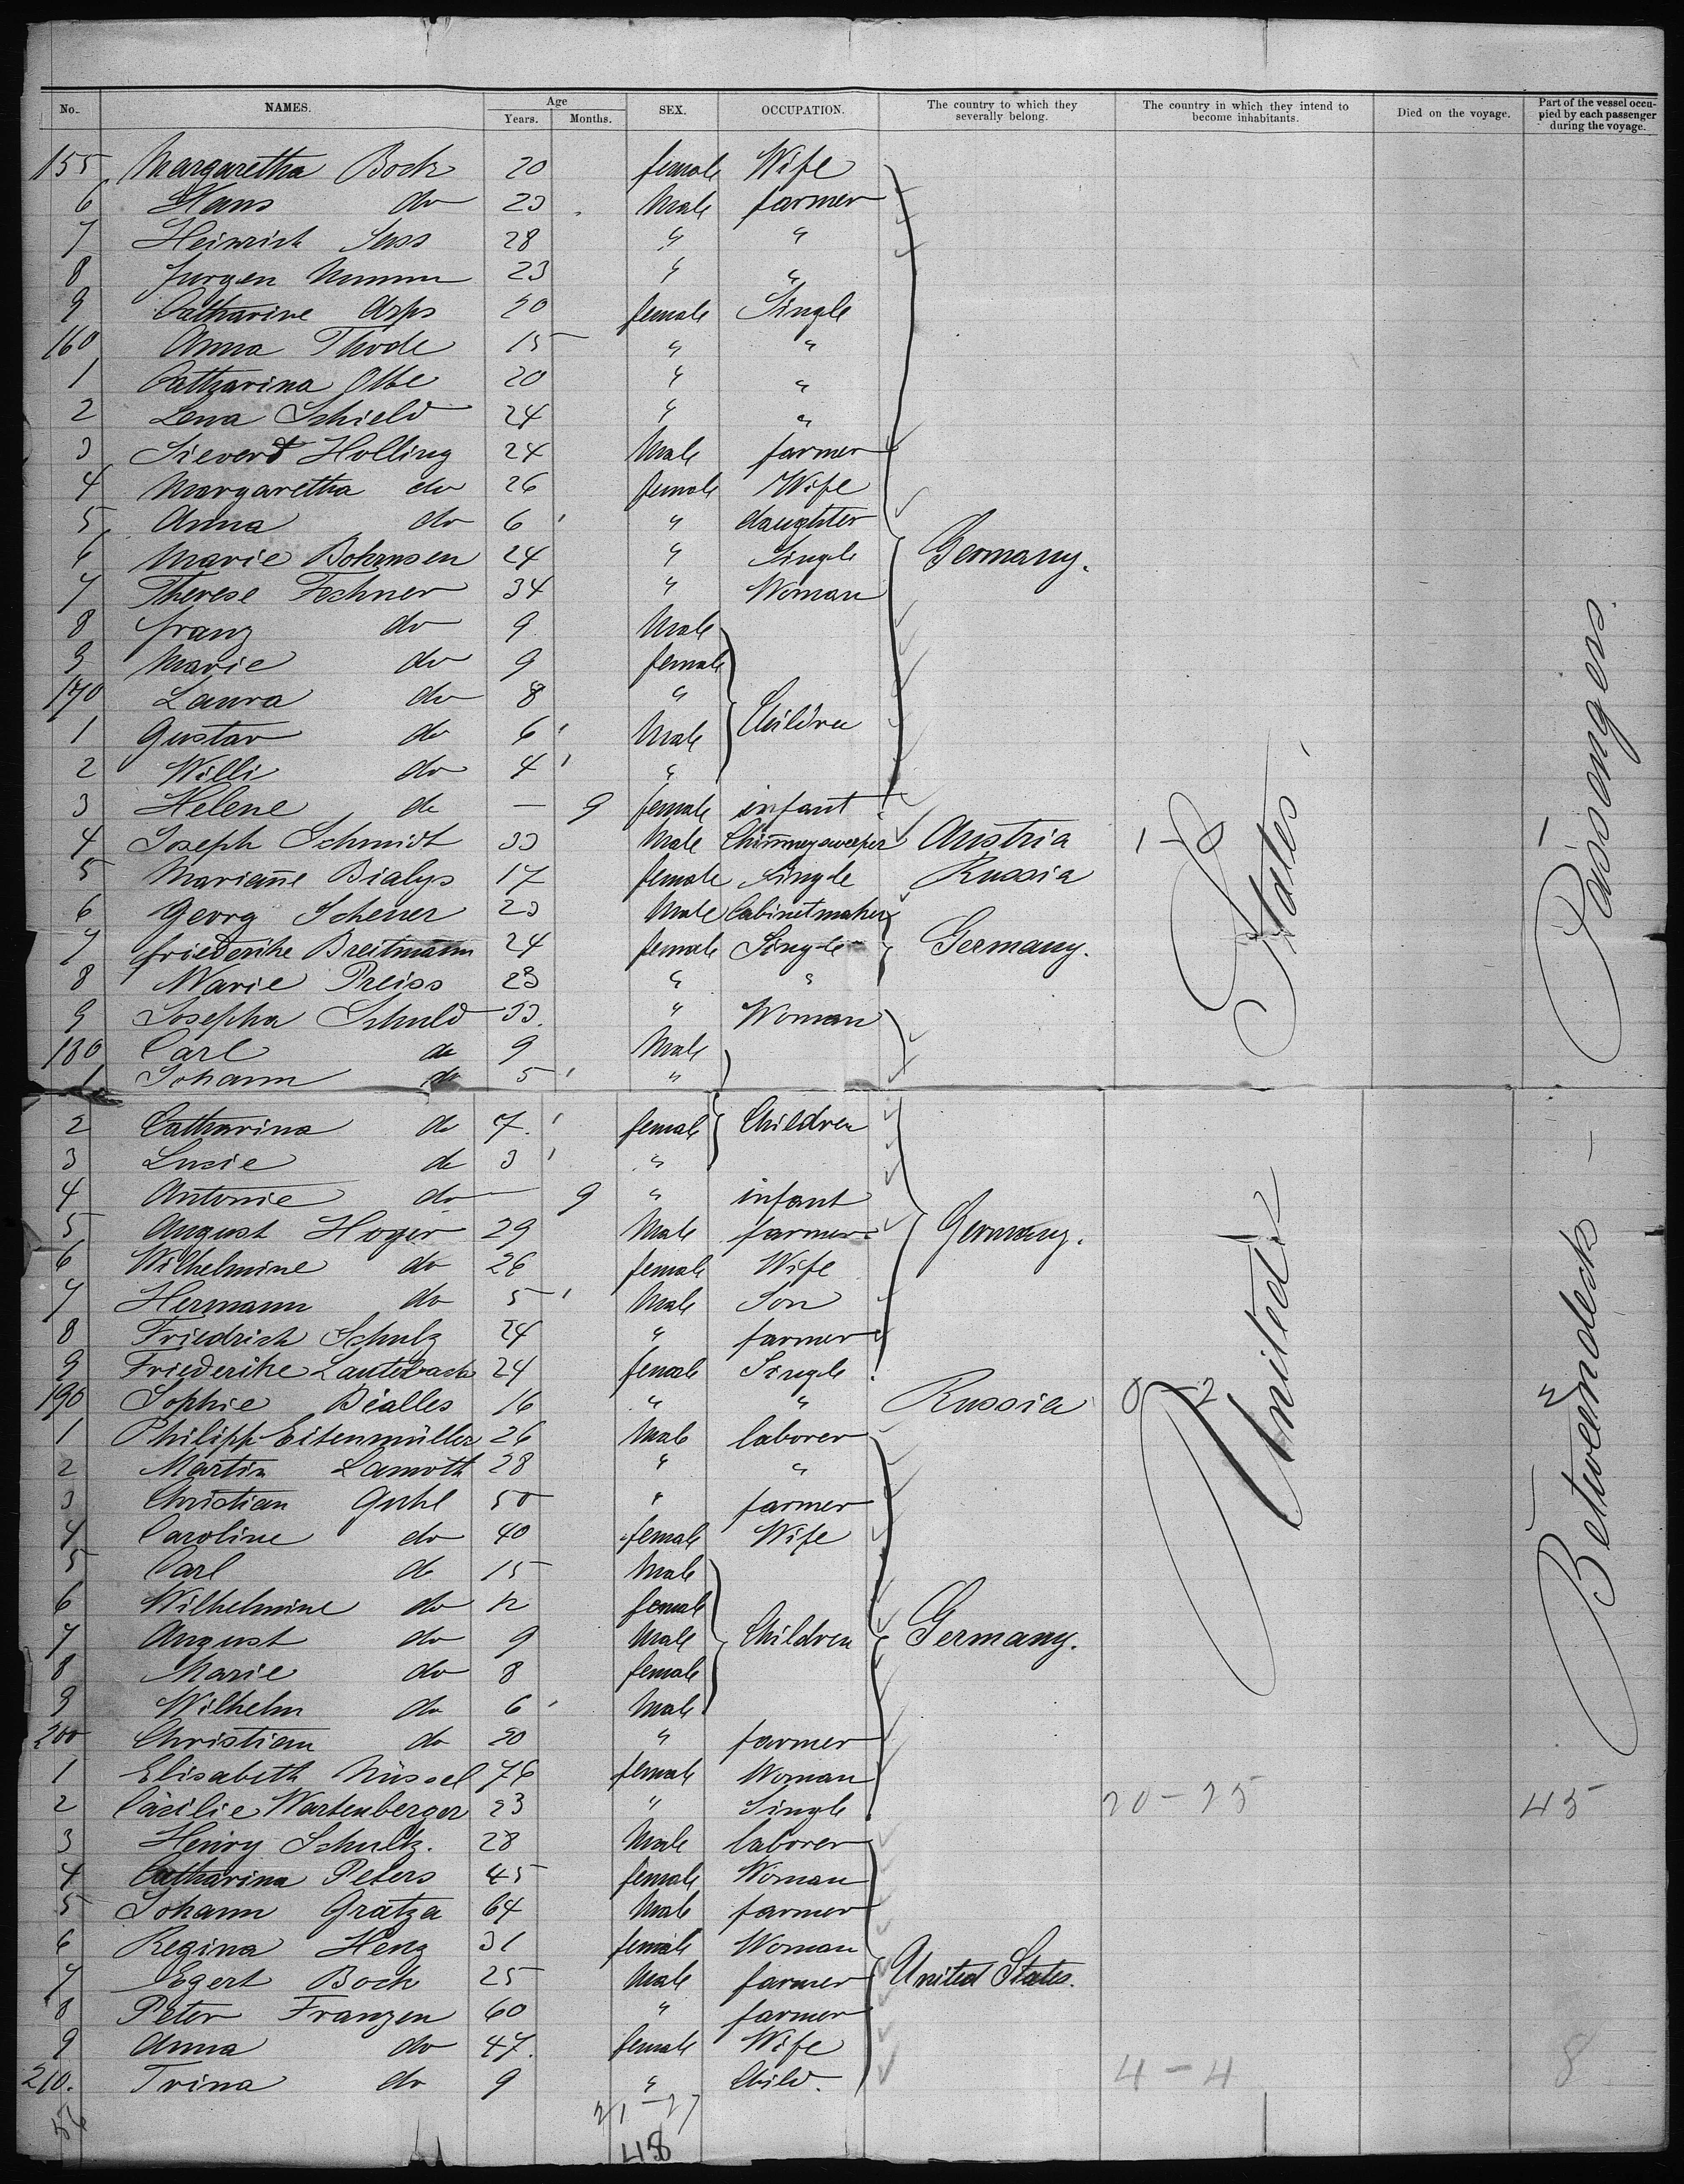 No. NAMES. Age Years. Months. SEX. OCCUPATION. The country to which they severally belong. The country in which they intend to become inhabitants. Died on the voyage. Part of the vessel occupied by each passenger during the voyage.
155 Margaretha Bock 20 female Wife
6 Hans do 23 Male farmer
7 Heinrich Sass 28 " "
8 Jurgen 23 " "
9 Catharine Arps 20 female Single
160 Anna Thode 15 " "
1 Catharina 20 " "
2 Lena Schield 24 " "
3 Sievert Holling 24 Male farmer
4 Margaretha do 26 female Wife
5 Anna do 6 " daughter
6 Marie Bohrnsen 24 " Single Germany.
7 Therese Fechner 34 " Woman
8 franz do 9 Male
9 Marie do 9 female
170 Laura do 8 "
1 Gustav do 6 Male Children
2 Willi do 4 "
3 Helene do — 9 female infant
4 Joseph Schmidt 33 Male Chimneysweeper Austria 1-0
5 Marianne Bialys 17 female Single Russia
6 Georg Scherer 23 Male Cabinetmaker
7 friederike Breitmann 24 female Single Germany.
8 Marie Preiss 23 " "
9 Josepha Schuld 33 " Woman
180 Carl do 9 Male
1 Johann do 5 "
2 Catharina do 7 female Children
3 Lucie do 3 "
4 Antonie do — 9 " infant
5 August Hoyer 29 Male farmer Germany.
6 Wilhelmine do 26 female Wife
7 Hermann do 5 Male Son
8 Friedrich Schulz 24 " farmer
9 Friederike Lauterbach 24 female Single
190 Sophie Bialles 16 " " Russia 0-2
1 Philipp Eitenmüller 26 Male laborer
2 Martin Lamoth 28 " "
3 Christian Guhl 50 " farmer
4 Caroline do 40 female Wife
5 Carl do 15 Male
6 Wilhelmine do female
7 August do 9 Male Children Germany.
8 Marie do 8 female
9 Wilhelm do 6 Male
200 Christian do 20 " farmer
1 Elisabeth Nüssel 76 female Woman
2 Cäcilie Wartenberger 23 " Single 20-25 45
3 Henry Schultz. 28 Male laborer
4 Catharina Peters 45 female Woman
5 Johann Gratza 64 Male farmer
6 Regina Henz 31 female Woman
7 Egert Bock 25 Male farmer United States.
8 Peter Franzen 60 " farmer
9 Anna do 47. female Wife
210. Trina do 9 " Child. 4-4 8
56 21-27
48
United States
Betweendeck Passengers.